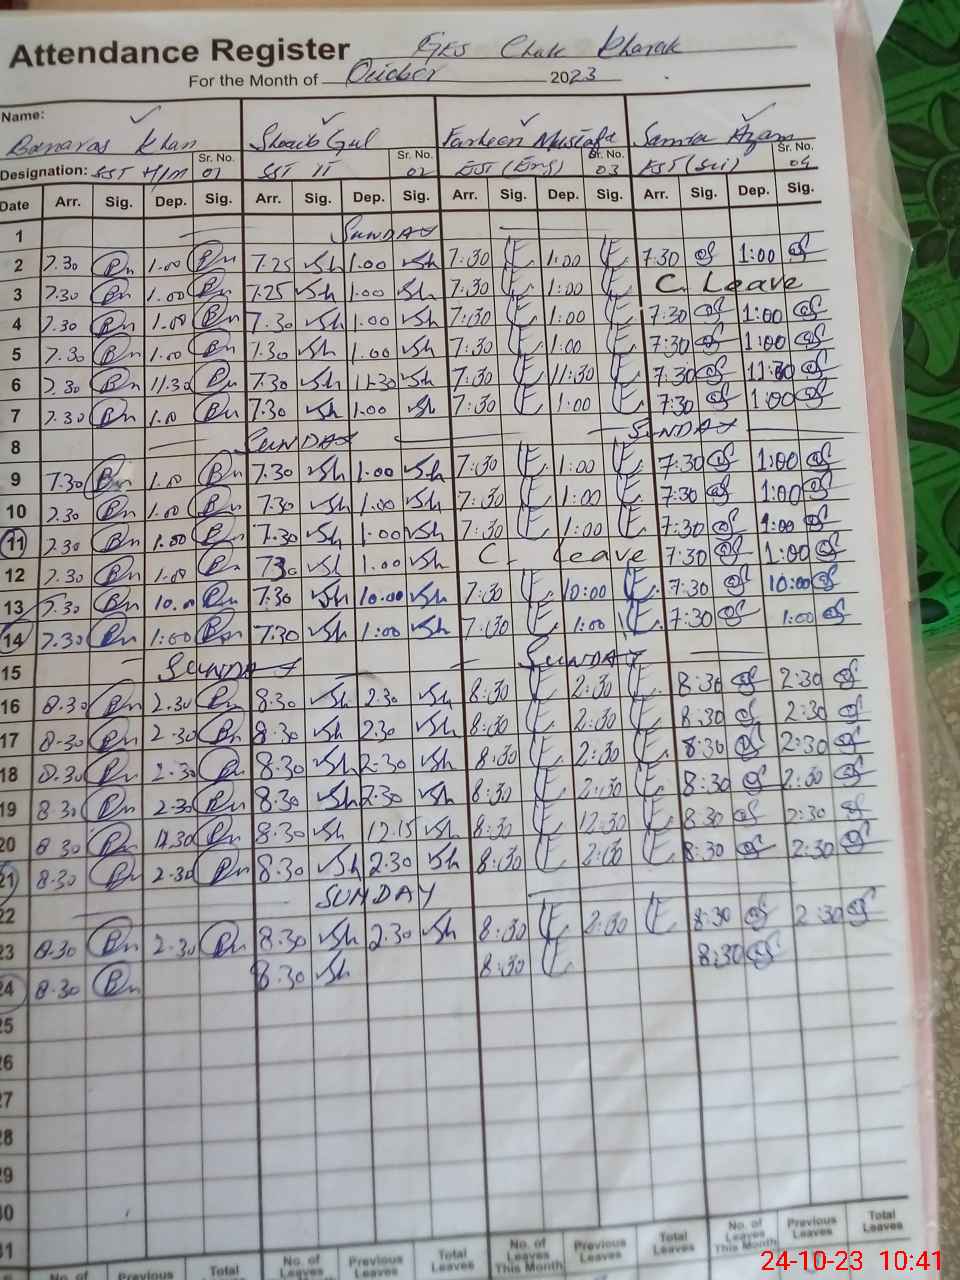 Attendance Register GES Chak Kharak
For the Month of October 2023
Name: Banaras Khan Shoaib Gul Farheen Mustafa Samra Azam
Designation: SST H/M Sr. No. 01 SST II Sr. No. 02 EST (Eng) Sr. No. 03 EST (Sci) Sr. No. 04
Date Arr. Sig. Dep. Sig. Arr. Sig. Dep. Sig. Arr. Sig. Dep. Sig. Arr. Sig. Dep. Sig.
1 SUNDAY
2 7.30 Bn 1.00 Bn 7.25 Sh 1.00 Sh 7:30 1:00 7:30 1:00
3 7.30 Bn 1.00 Bn 7.25 Sh 1.00 Sh 7:30 1:00 C. Leave
4 7.30 Bn 1.00 Bn 7.30 Sh 1.00 Sh 7:30 1:00 7:30 1:00
5 7.30 Bn 1.00 Bn 7.30 Sh 1.00 Sh 7:30 1:00 7:30 1:00
6 7.30 Bn 11.30 Bn 7.30 Sh 11.30 Sh 7:30 11:30 7:30 11:30
7 7.30 Bn 1.00 Bn 7.30 Sh 1.00 Sh 7:30 1:00 7:30 1:00
8 SUNDAY SUNDAY
9 7.30 Bn 1.00 Bn 7.30 Sh 1.00 Sh 7:30 1:00 7:30 1:00
10 7.30 Bn 1.00 Bn 7.30 Sh 1.00 Sh 7:30 1:00 7:30 1:00
11 7.30 Bn 1.00 Bn 7.30 Sh 1.00 Sh 7:30 1:00 7:30 1:00
12 7.30 Bn 1.00 Bn 7.30 Sh 1.00 Sh C. leave 7:30 1:00
13 7.30 Bn 10.00 Bn 7.30 Sh 10.00 Sh 7:30 10:00 7:30 10:00
14 7.30 Bn 1:00 Bn 7.30 Sh 1:00 Sh 7:30 1:00 7:30 1:00
15 SUNDAY SUNDAY
16 8.30 Bn 2.30 Bn 8.30 Sh 2.30 Sh 8:30 2:30 8:30 2:30
17 8.30 Bn 2.30 Bn 8.30 Sh 2.30 Sh 8:30 2:30 8:30 2:30
18 8.30 Bn 2.30 Bn 8.30 Sh 2.30 Sh 8:30 2:30 8:30 2:30
19 8.30 Bn 2.30 Bn 8.30 Sh 2.30 Sh 8:30 2:30 8:30 2:30
20 8.30 Bn Bn 8.30 Sh 12.15 Sh 8:30 12.30 8:30 2:30
21 8.30 Bn 2.30 Bn 8.30 Sh 2.30 Sh 8:30 2:30 8:30 2:30
22 SUNDAY
23 8.30 Bn 2.30 Bn 8.30 Sh 2.30 Sh 8:30 2:30 8:30 2:30
24 8.30 Bn 8.30 Sh 8:30 8:30
25
26
27
28
29
30
31
No. of Previous Total No. of Leaves Previous Leaves Total Leaves No. of Leaves This Month Previous Leaves Total Leaves No. of Leaves This Month Previous Leaves Total Leaves
24-10-23 10:41